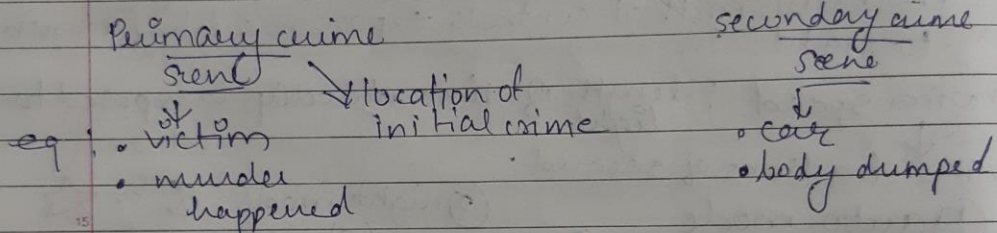 Primary crime
scene
location of
initial crime
eg • victim
• murder
happened
secondary crime
scene
• car
• body dumped
15